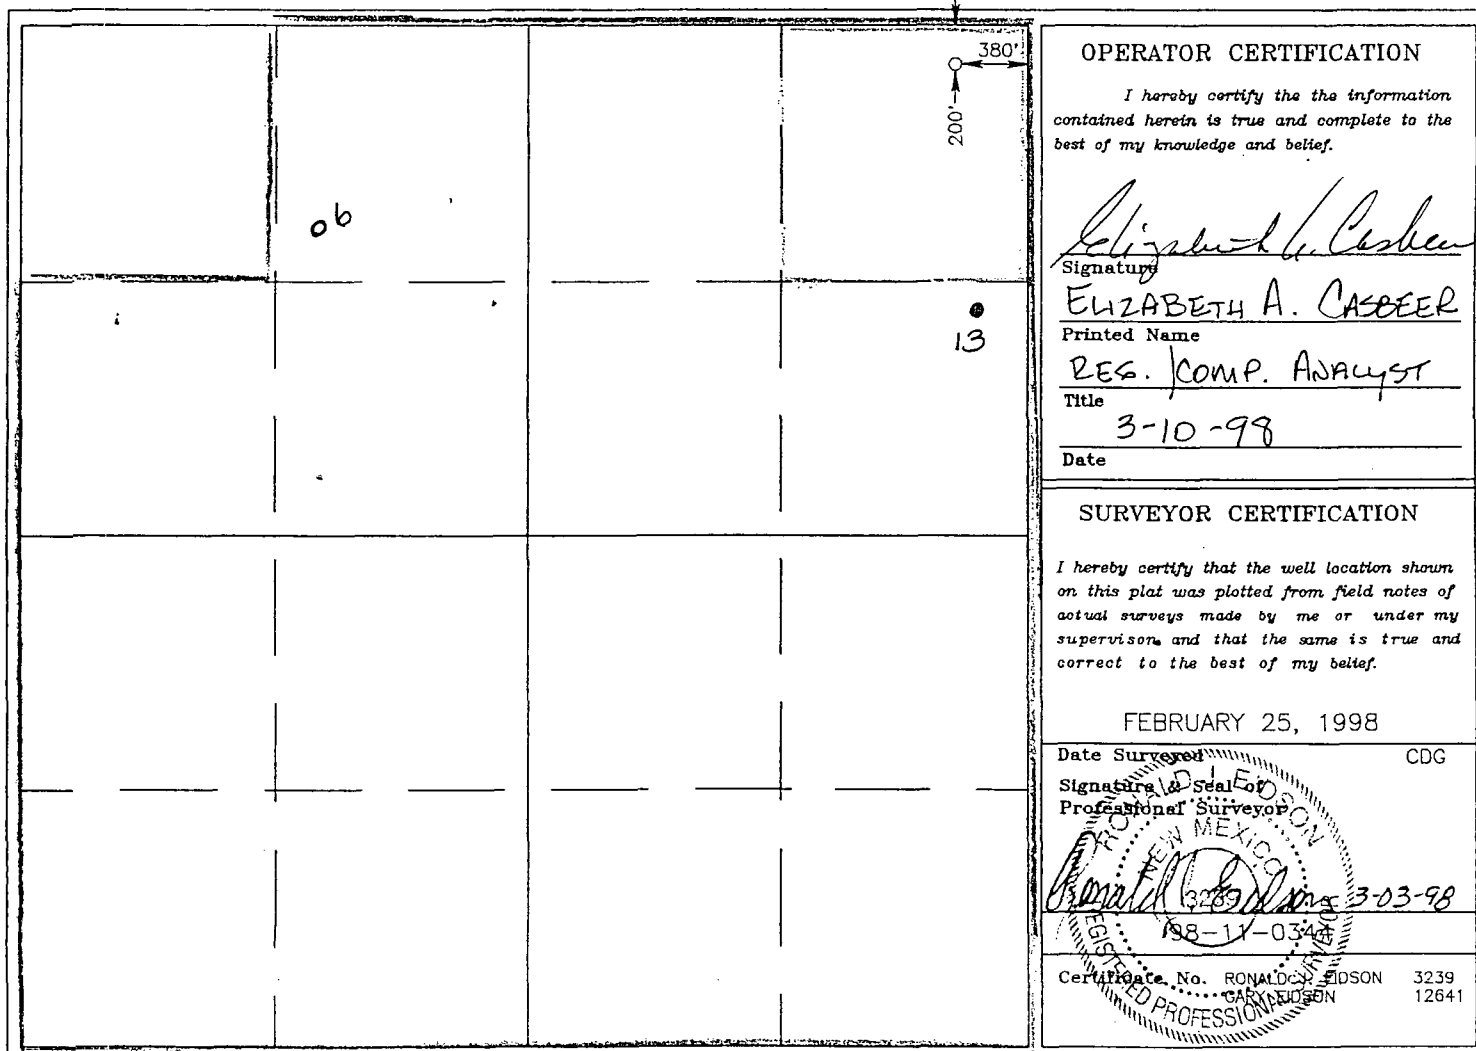 380'
200'
o 6
13
OPERATOR CERTIFICATION
I hereby certify the the information
contained herein is true and complete to the
best of my knowledge and belief.
Elizabeth A. Casbeer
Signature
ELIZABETH A. CASBEER
Printed Name
REG. COMP. ANALYST
Title
3-10-98
Date
SURVEYOR CERTIFICATION
I hereby certify that the well location shown
on this plat was plotted from field notes of
actual surveys made by me or under my
supervison, and that the same is true and
correct to the best of my belief.
FEBRUARY 25, 1998
Date Surveyed CDG
Signature & Seal of
Professional Surveyor
RONALD J. EIDSON
NEW MEXICO
3239
REGISTERED PROFESSIONAL SURVEYOR
Ronald J. Eidson 3-03-98
98-11-0344
Certificate No. RONALD J. EIDSON 3239
GARY EIDSON 12641